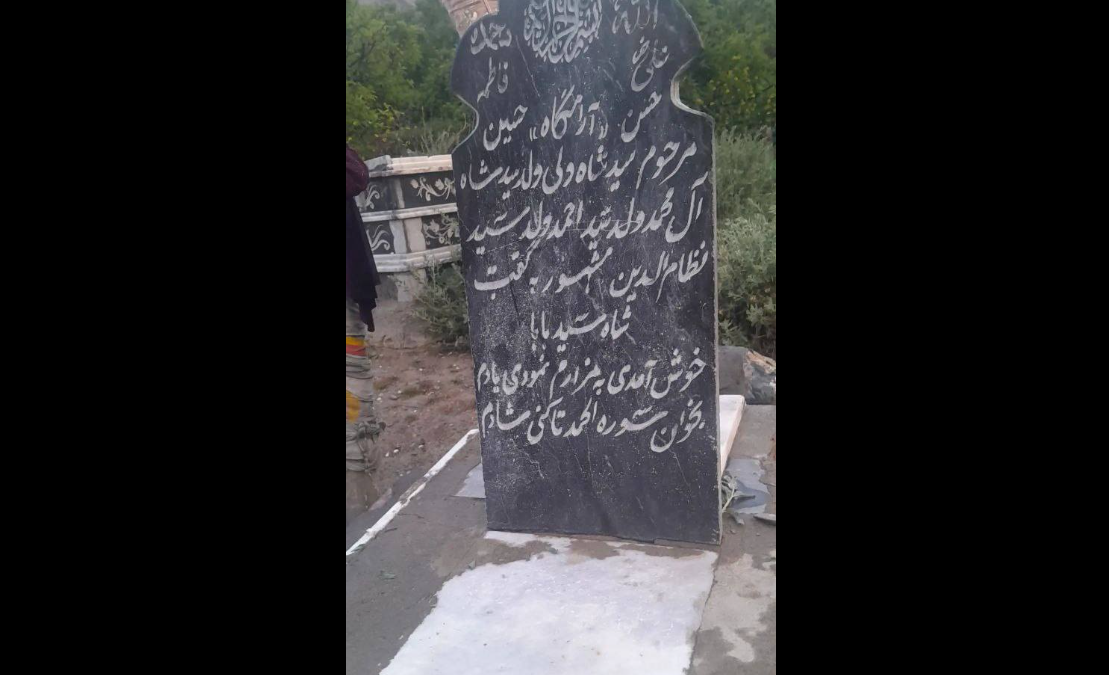 الله محمد
علی فاطمه
حسن "آرامگاه" حسین
مرحوم سید شاه ولی ولد سید شاه
آل محمد ولد سید احمد ولد سید
نظام الدین مشهور به لقب
شاه سید بابا
خوش آمدی به مزارم نمودی یادم
بخوان سوره الحمد تا کنی شادم